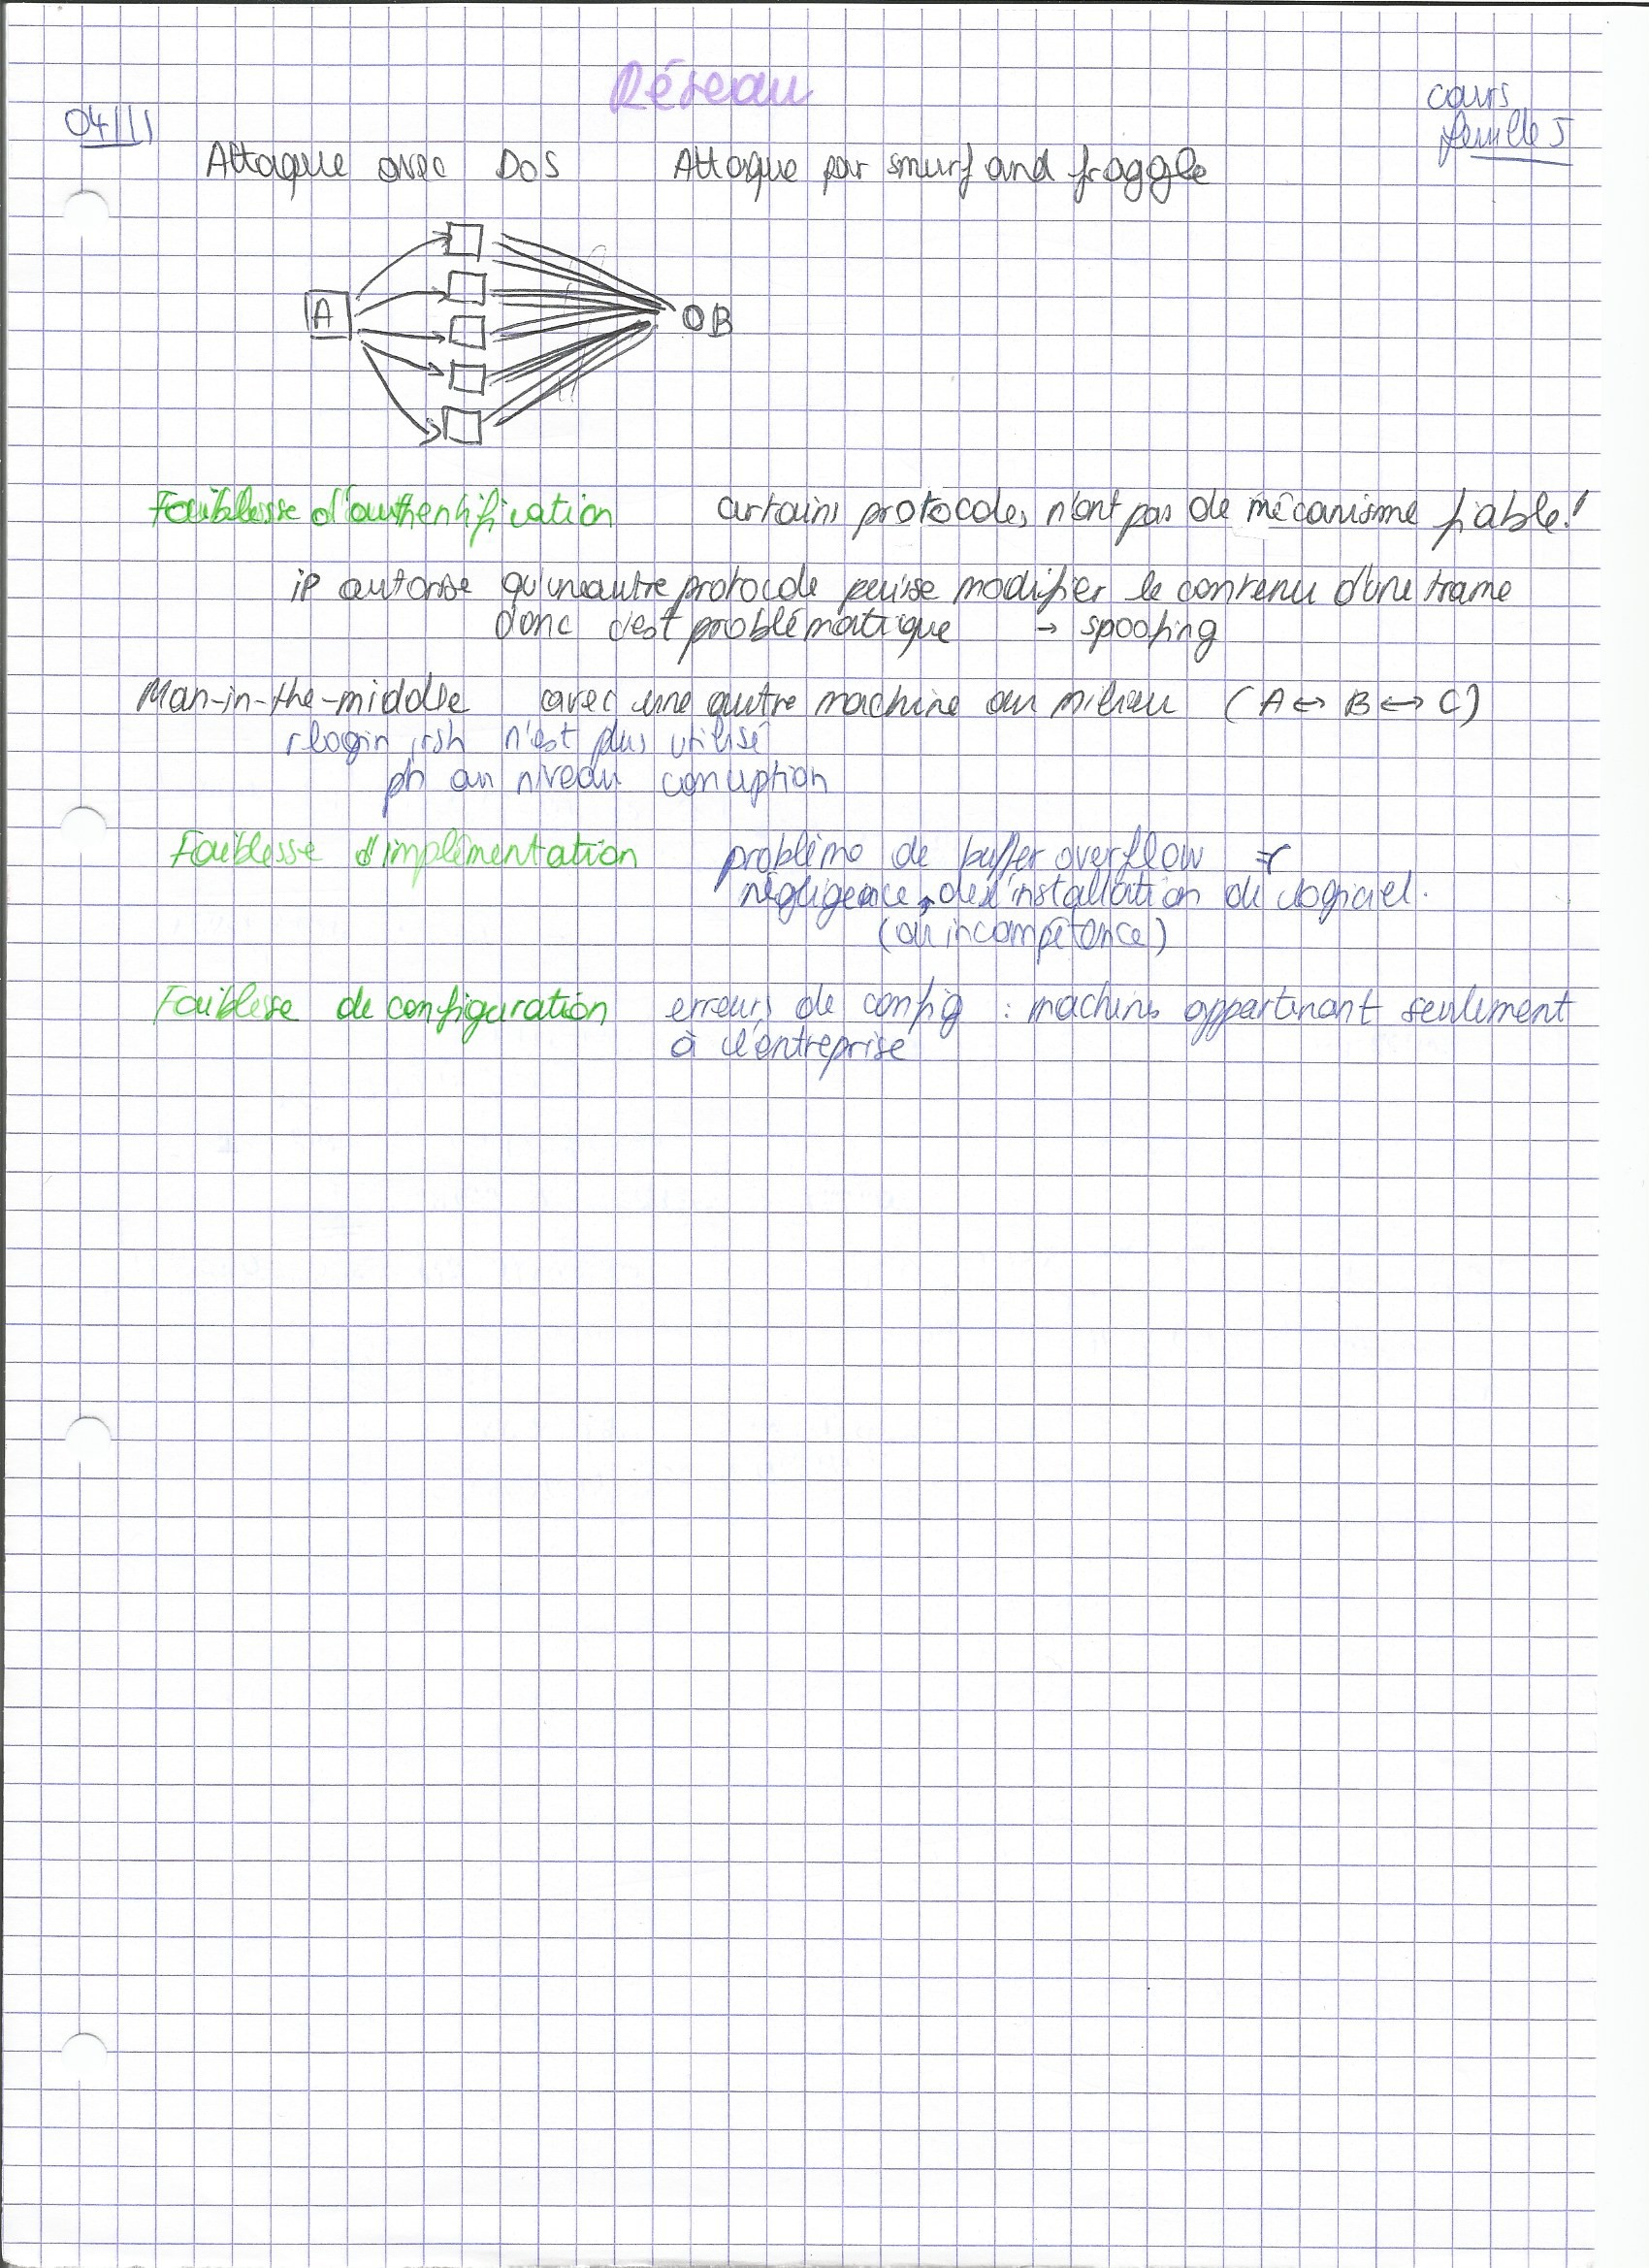 Réseau
cours
04/11
feuille 5
Attaque avec DoS Attaque par smurf and fraggle
A
B
Faiblesse d'authentification certains protocoles n'ont pas de mécanisme fiable!
iP autorise qu'une autre protocole puisse modifier le contenu d'une trame
donc c'est problématique → spoofing
Man-in-the-middle avec une autre machine au milieu (A ↔ B ↔ C)
rlogin, rsh n'est plus utilisé
pb au niveau corruption
Faiblesse d'implémentation problème de buffer overflow
négligence de l'installation de logiciel.
(ou incompétence)
Faiblesse de configuration erreurs de config : machines appartenant seulement
à l'entreprise